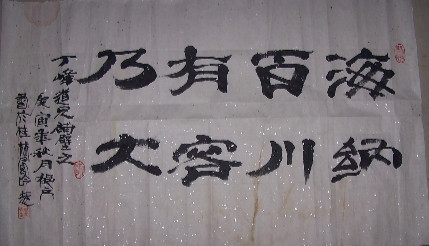 海納
百川
有容
乃大
丁峰道兄補壁之
庚寅年秋月
書於桂林